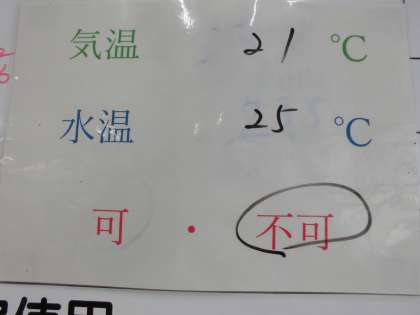 気温 21 ℃
水温 25 ℃
可 ・ 不可
使用